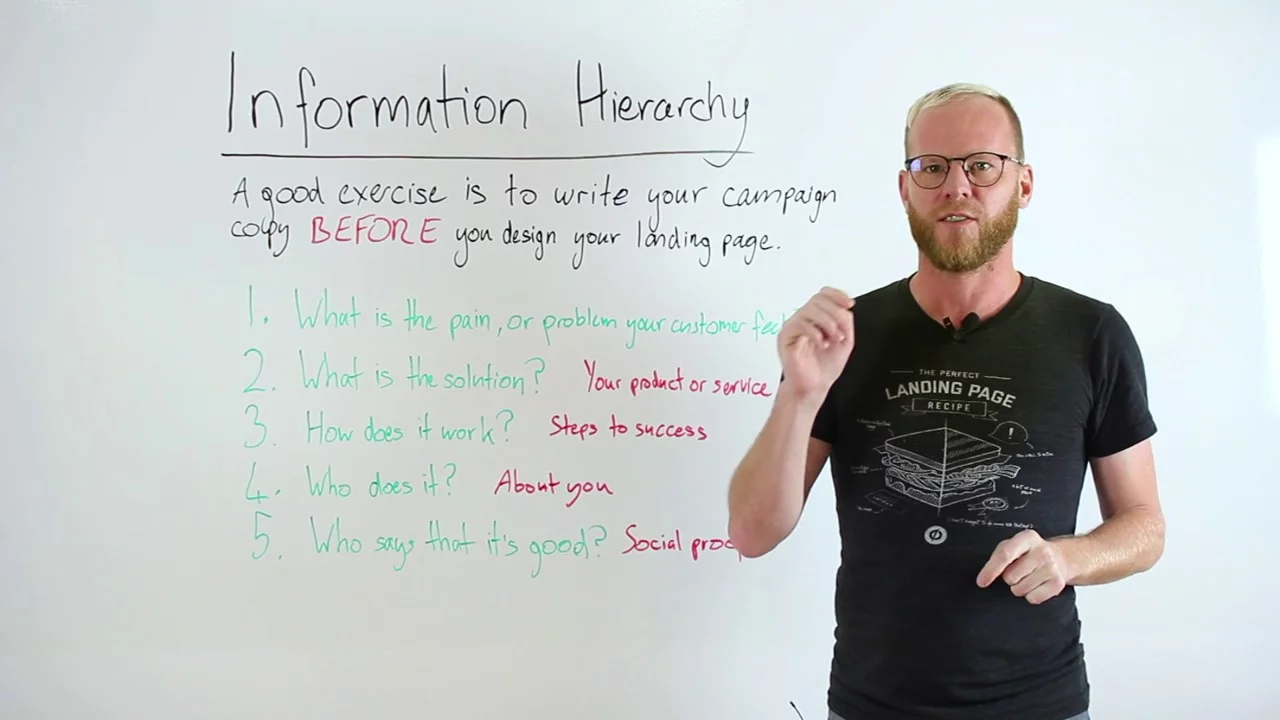 Information Hierarchy
A good exercise is to write your campaign
copy BEFORE you design your landing page.
1. What is the pain, or problem your customer
2. What is the solution? Your product or service
3. How does it work? Steps to success
4. Who does it? About you
5. Who says that it's good? Social
THE PERFECT
LANDING PAGE
RECIPE